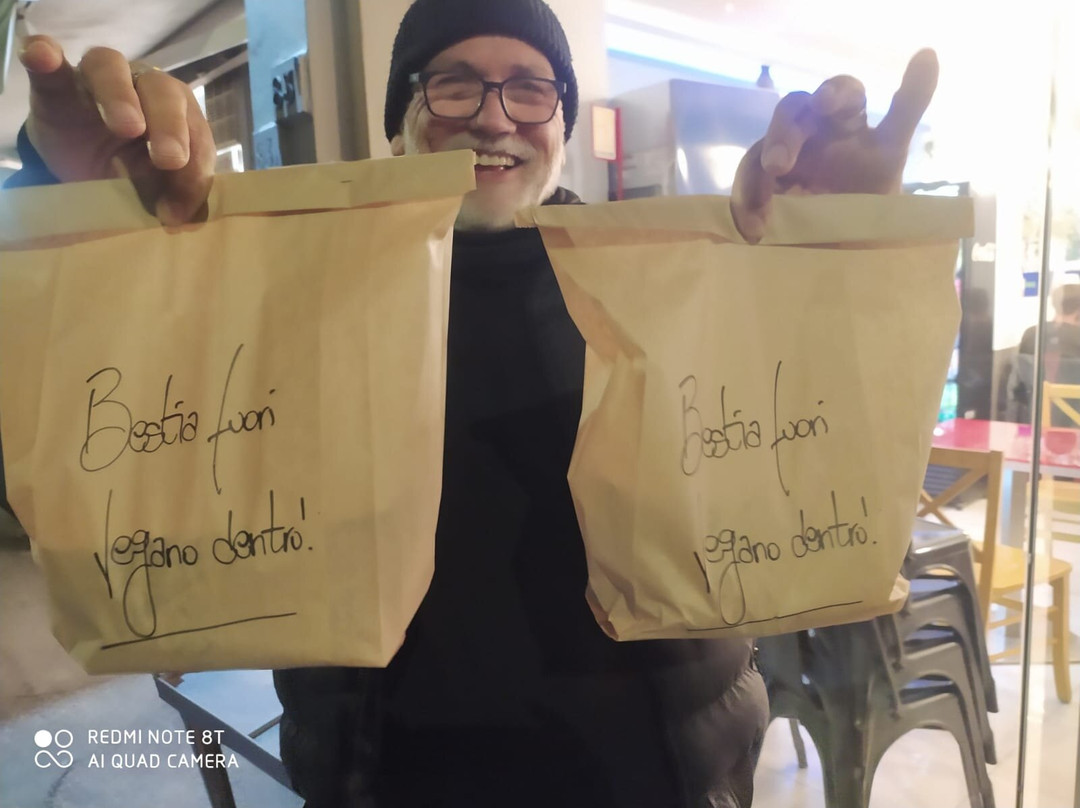 Bestia fuori
vegano dentro!
Bestia fuori
vegano dentro!
REDMI NOTE 8T
AI QUAD CAMERA